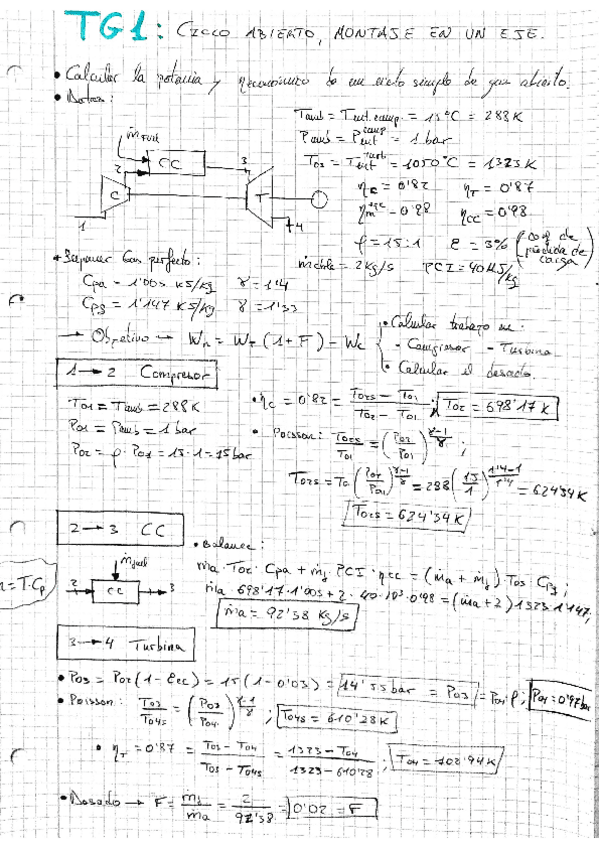 TG1: CICLO ABIERTO, MONTAJE EN UN EJE.
• Calcular la potencia y rendimiento de un ciclo simple de gas abierto.
• Datos:
Tamb = Tent.comp. = 15°C = 288K
Pamb = Pent comp = 1 bar
T03 = Tent turb = 1050°C = 1323K
ηc = 0'82 ηT = 0'87
ηm = 0'98 ηcc = 0'98
ρ = 15:1 ε = 3% (coef de pérdida de carga)
ṁcble = 2kg/s PCI = 40MJ/kg
ṁfuel
2 CC 3
C T
1 4
• Suponer Gas perfecto:
Cpa = 1'005 KJ/kg γ = 1'4
Cpg = 1'147 KJ/kg γ = 1'33
→ Objetivo → Wn = WT (1+F) - Wc
• Calcular trabajo en:
- Compresor - Turbina
• Calcular el dosado.
1 → 2 Compresor
T01 = Tamb = 288K
P01 = Pamb = 1 bar
P02 = ρ · P01 = 15·1 = 15bar
• ηc = 0'82 = T02s - T01 / T02 - T01 ; T02 = 698'17 K
• Poisson: T02s/T01 = (P02/P01)^γ-1/γ ;
T02s = T0 (P02/P01)^γ-1/γ = 288 (15/1)^1'4-1/1'4 = 624'34 K
T02s = 624'34 K
2 → 3 CC
• Balance:
ṁfuel
2 CC 3
= T·Cp
ṁa · T02 · Cpa + ṁf · PCI · ηcc = (ṁa + ṁf) · T03 · Cpg ;
ṁa 698'17 · 1'005 + 2 · 40·10³ · 0'98 = (ṁa + 2) 1323 · 1'147 ;
ṁa = 92'38 Kg/s
3 → 4 Turbina
• P03 = P02 (1 - εcc) = 15 (1 - 0'03) = 14'55 bar = P03 = P04 · ρ ; P04 = 0'97 bar
• Poisson: T03/T04s = (P03/P04)^γ-1/γ ; T04s = 610'28K
• ηT = 0'87 = T03 - T04 / T03 - T04s = 1323 - T04 / 1323 - 610'28 ; T04 = 702'94K
• Dosado → F = ṁf/ṁa = 2/92'38 = 0'02 = F